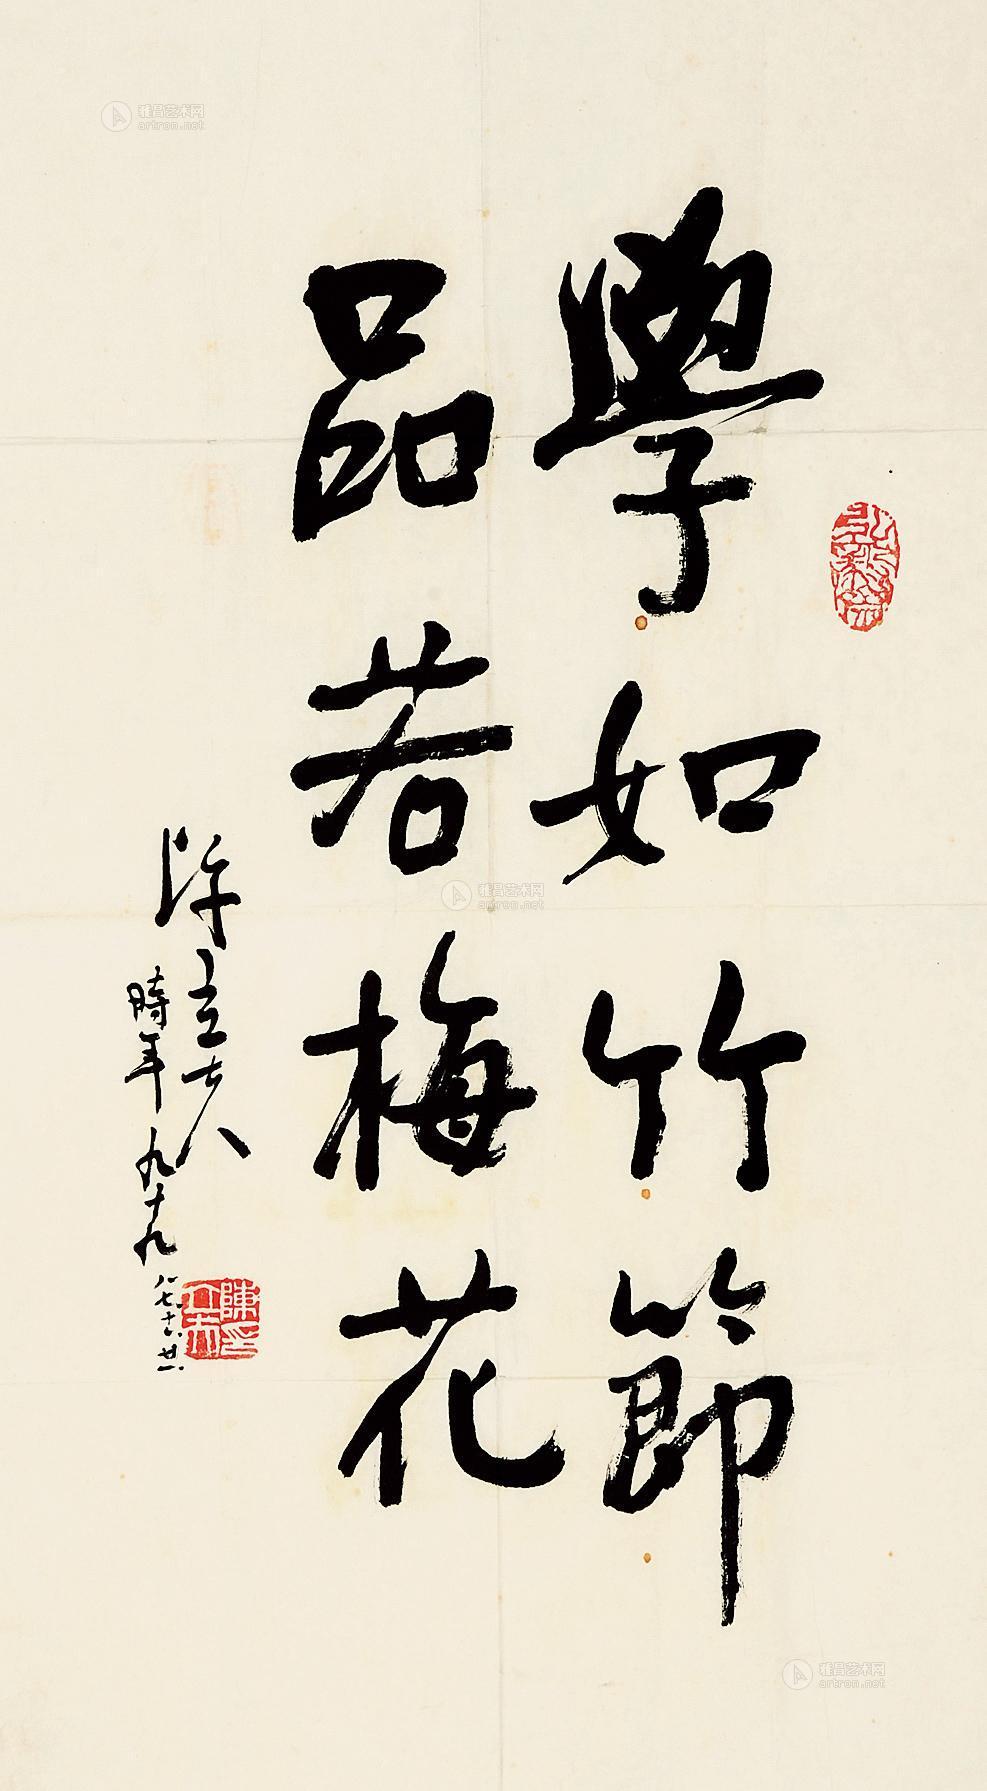 學如竹節
品若梅花
陳立夫
時年九十九
八七、十、廿一
陳立夫印
雅昌艺术网
artron.net
雅昌艺术网
artron.net
雅昌艺术网
artron.net